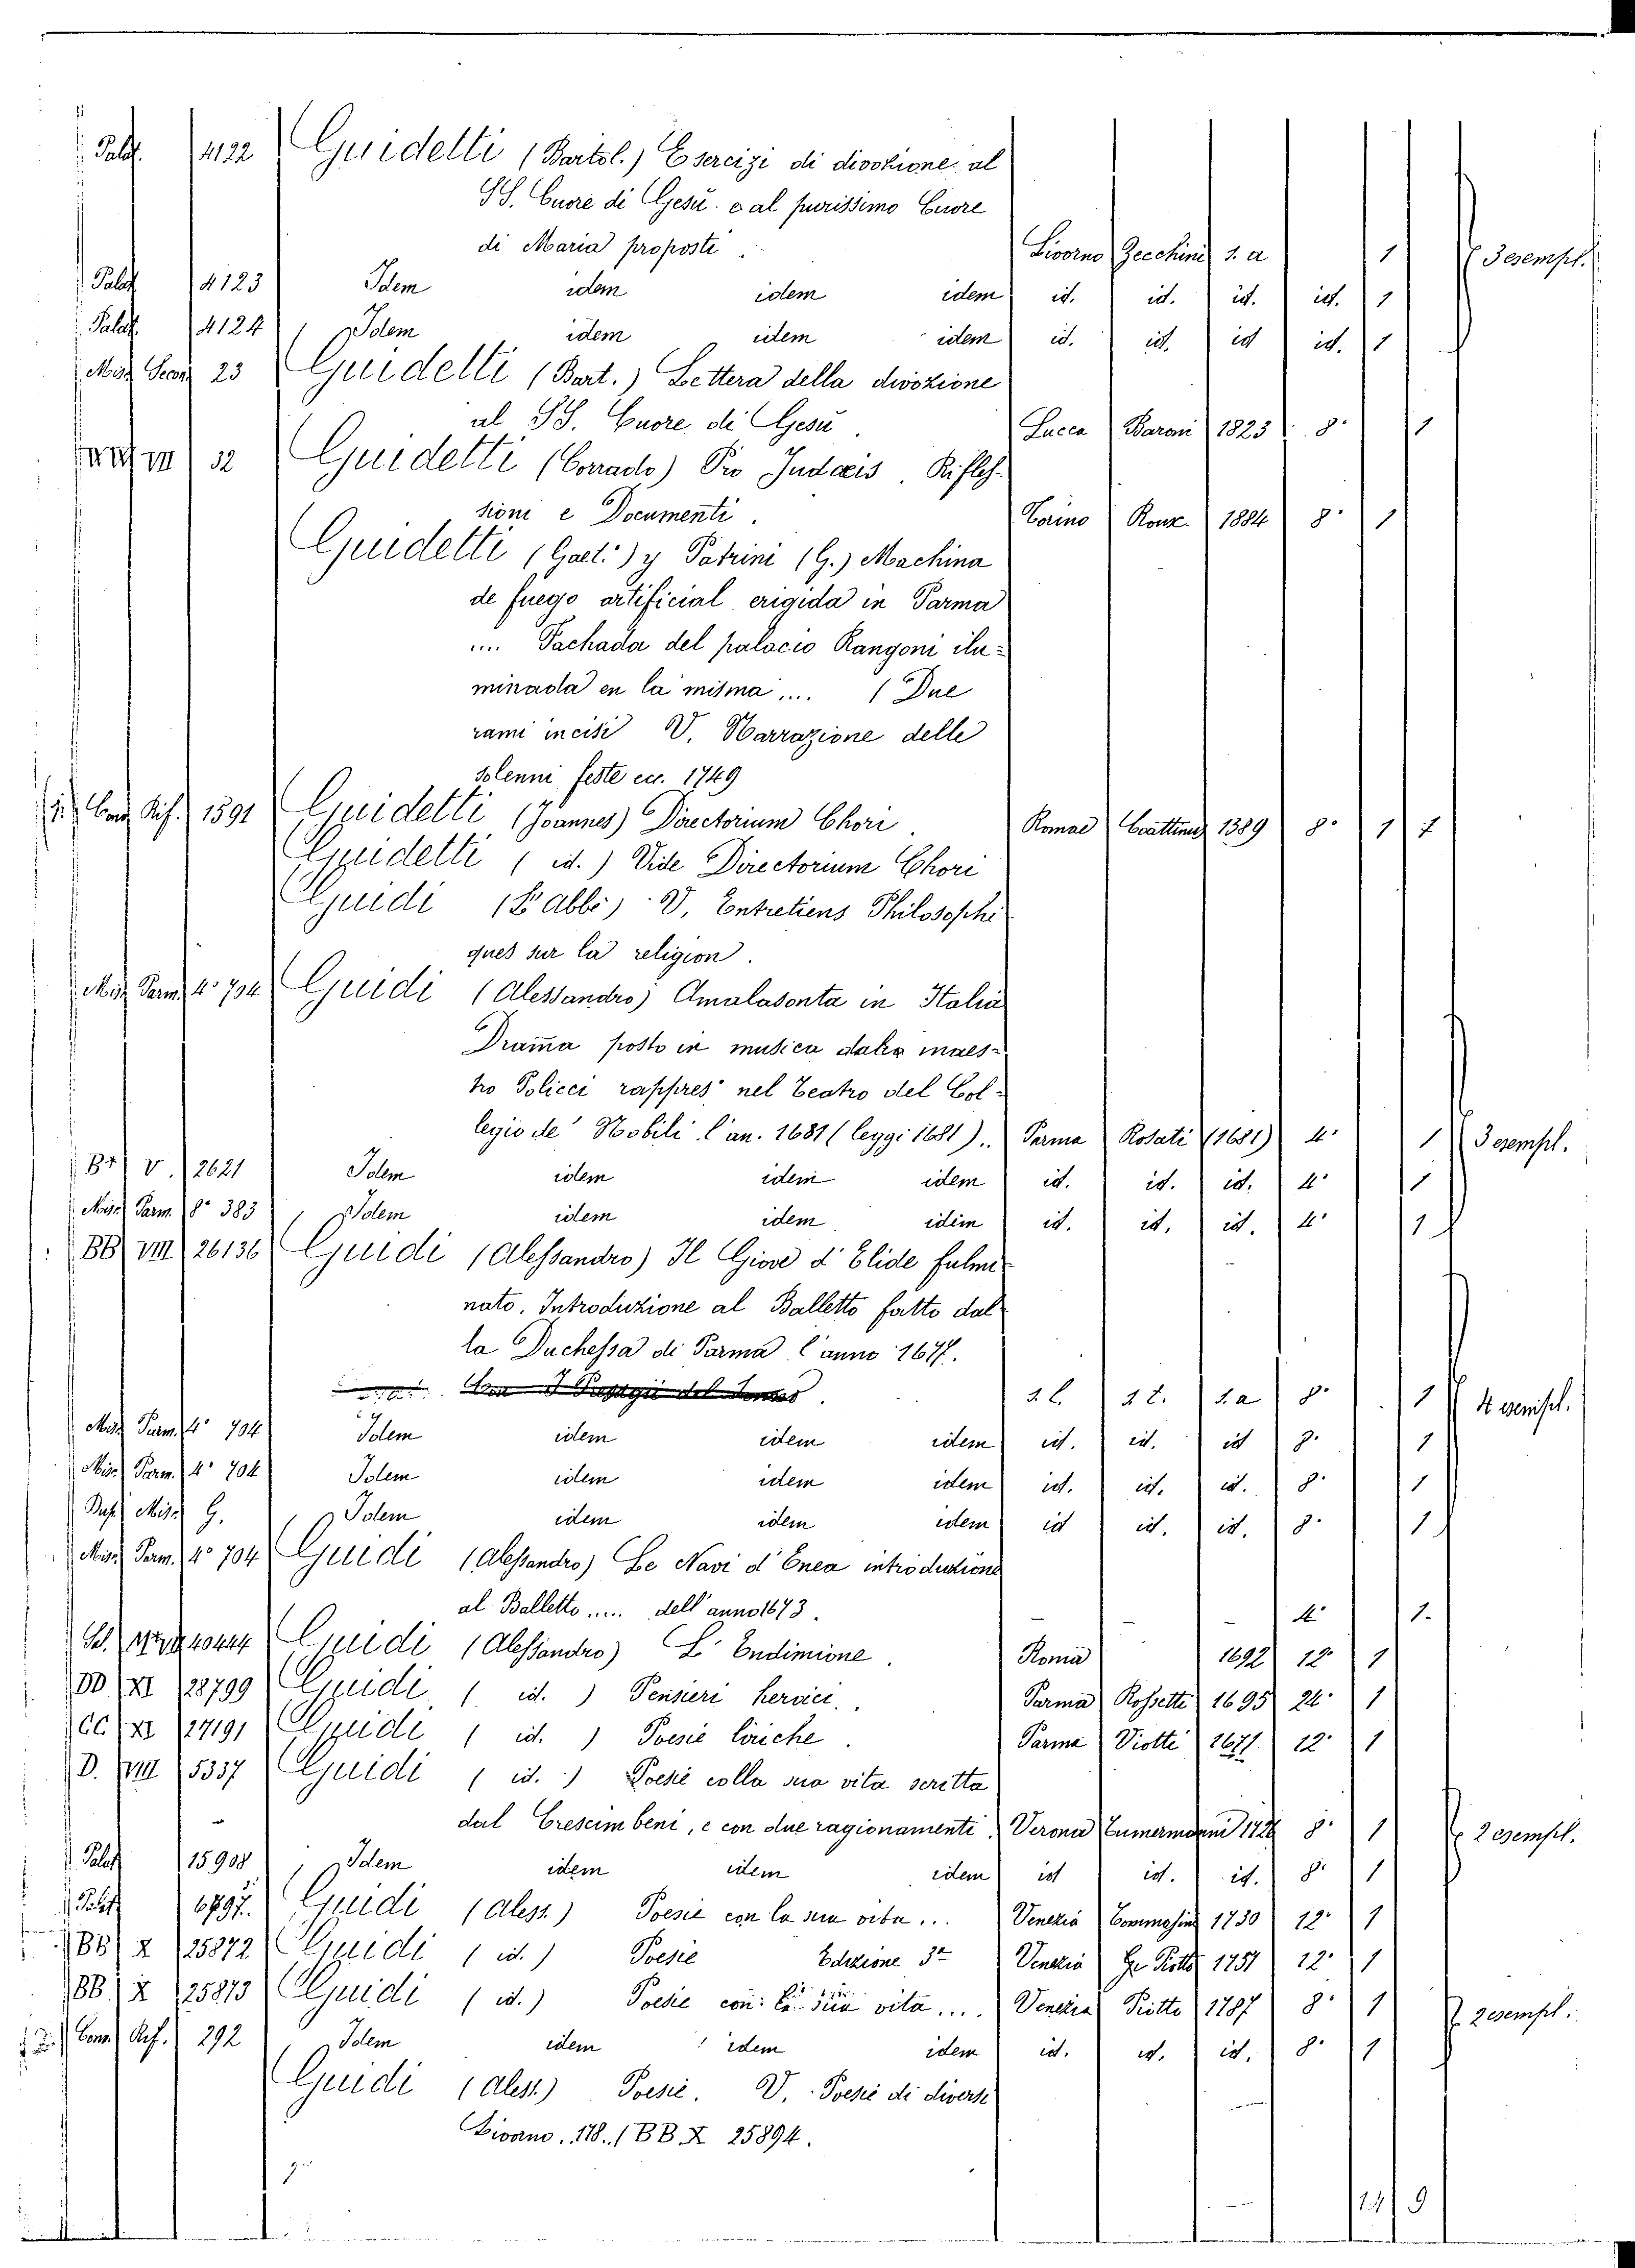 Palat. 4122 Guidetti (Bartol.) Esercizi di divozione al
SS. Cuore di Gesù e al purissimo Cuore
di Maria proposti. Livorno Zecchini s. a 1 3 esempl.
Palat 4123 Idem idem idem idem id. id. id. id. 1
Palat. 4124 Idem idem idem idem id. id. id id. 1
23 Guidetti (Bart.) Lettera della divozione
al SS. Cuore di Gesù Lucca Baroni 1823 8° 1
VIII 32 Guidetti (Corrado) Pro Judaeis. Rifles-
sioni e Documenti. Torino Roux 1884 8° 1
Guidetti (Gaet.) y Patrini (G.) Machina
de fuego artificial erigida in Parma
.... Fachada del palacio Rangoni ilu-
minada en la misma .... (Due
rami incisi V. Narrazione delle
solenni feste ecc. 1749
Rif. 1591 Guidetti (Joannes) Directorium Chori. Romae 1589 8° 1 1
Guidetti (id.) Vide Directorium Chori
Guidi (L'abbé) V. Entretiens Philosophi
ques sur la religion.
Misc. Parm. 4° 704 Guidi (Alessandro) Amalasonta in Italia
Drama posto in musica dal maes-
tro Policci rappres. nel Teatro del Col-
legio de' Nobili l'an. 1681 (leggi 1681).. Parma Rosati (1681) 4° 1 3 esempl.
BB V. 2621 Idem idem idem idem id. id. id. 4° 1
Misc. Parm. 8° 383 Idem idem idem idem id. id. id. 4° 1
BB VIII 26136 Guidi (Alessandro) Il Giove d'Elide fulmi
nato. Introduzione al Balletto fatto dal
la Duchessa di Parma l'anno 1677.
s. l. s. t. s. a 8° 1 4 esempl.
Misc. Parm. 4° 704 Idem idem idem idem id. id. id 8° 1
Misc. Parm. 4° 704 Idem idem idem idem id. id. id. 8° 1
Misc. G. Idem idem idem idem id id. id. 8° 1
Misc. Parm. 4° 704 Guidi (Alessandro) Le Navi d'Enea introduzione
al Balletto ..... dell'anno 1673. – – – 4° 1.
Guidi (Alessandro) L'Endimione. Roma 1692 12° 1
DD XI 28799 Guidi (id.) Pensieri heroici. Parma Rossetti 1695 24° 1
CC XI 27191 Guidi (id.) Poesie liriche. Parma Viotti 1671 12° 1
D. VIII 5337 Guidi (id.) Poesie colla sua vita scritta
dal Crescimbeni, e con due ragionamenti. Verona Tumermanni 1726 8° 1 2 esempl.
Palat 15908 Idem idem idem idem id id. id. 8° 1
Palat 6797. Guidi (Aless.) Poesie con la sua vita... Venezia 1730 12° 1
BB X 25872 Guidi (id.) Poesie Edizione 3a Venezia 1751 12° 1
BB. X 25873 Guidi (id.) Poesie con la sua vita.... Venezia Pitto 1787 8° 1 2 esempl.
Rif. 292 Idem idem idem idem id. id. id. 8° 1
Guidi (Aless.) Poesie. V. Poesie di diversi
Livorno. 178. (BB X 25894.
14 9